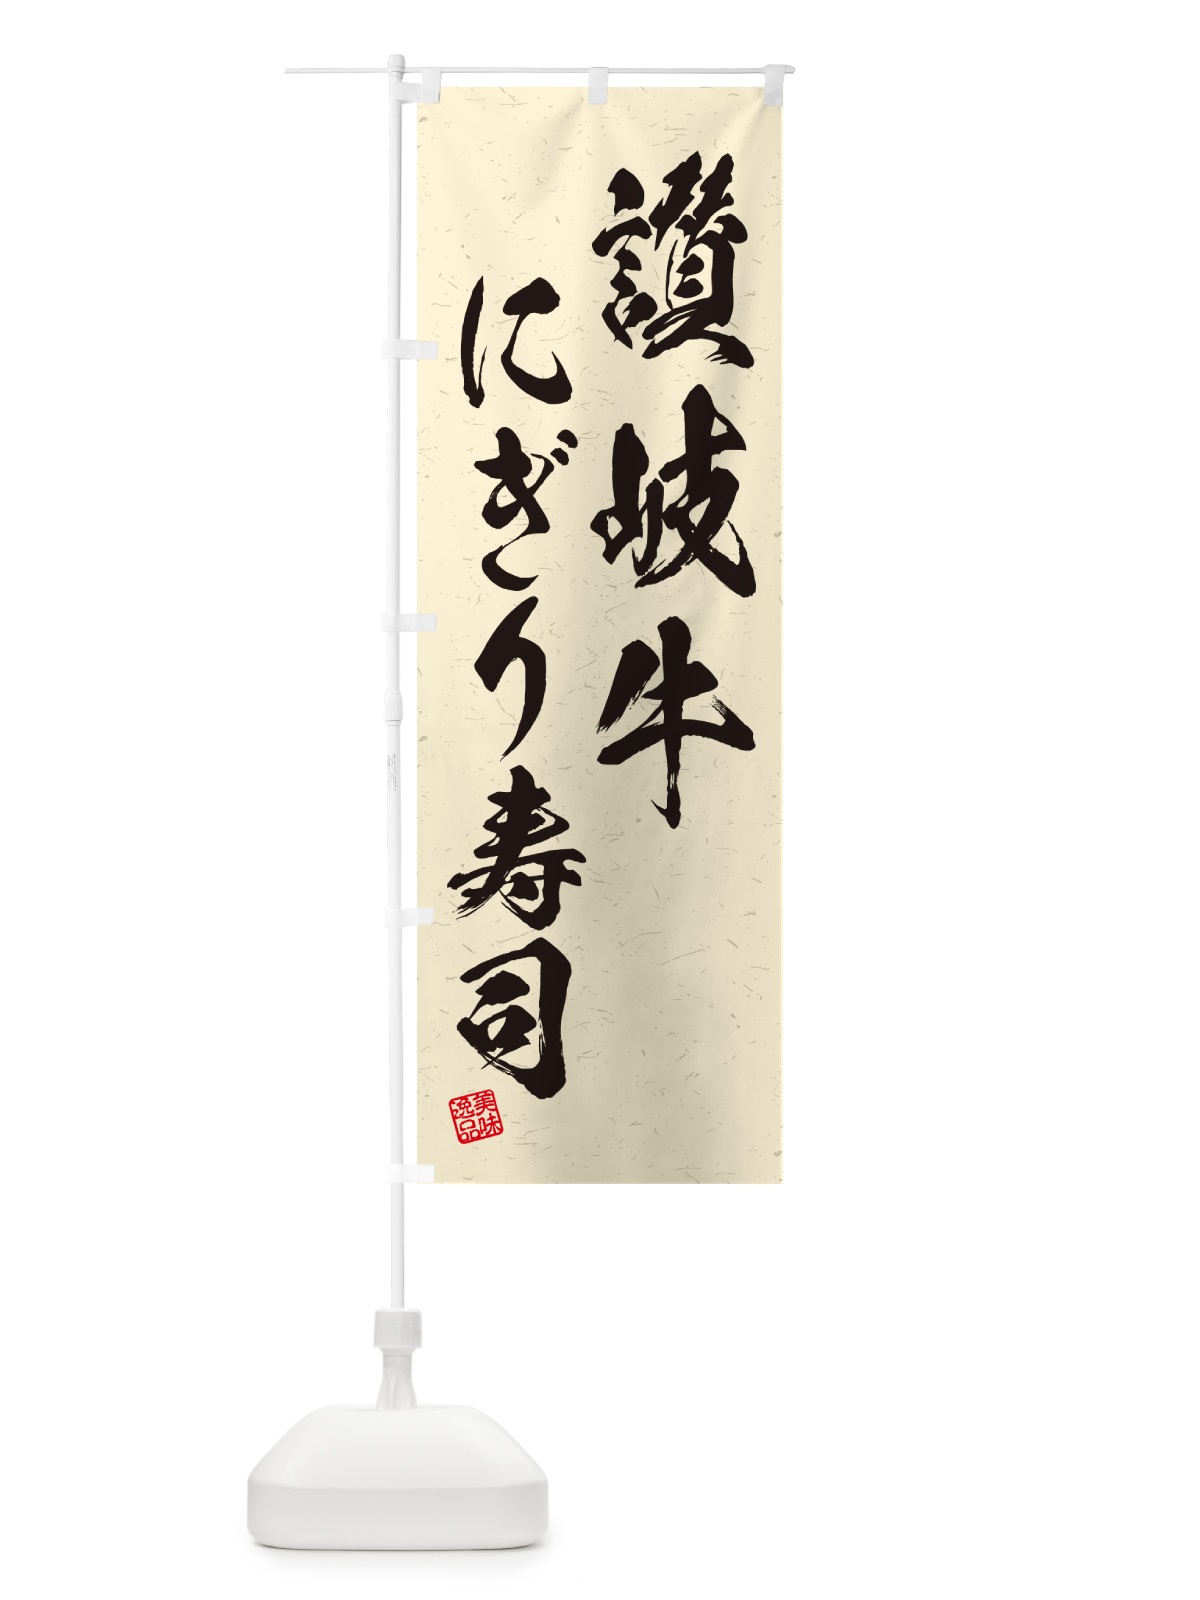 讃岐牛
にぎり寿司
美味
逸品